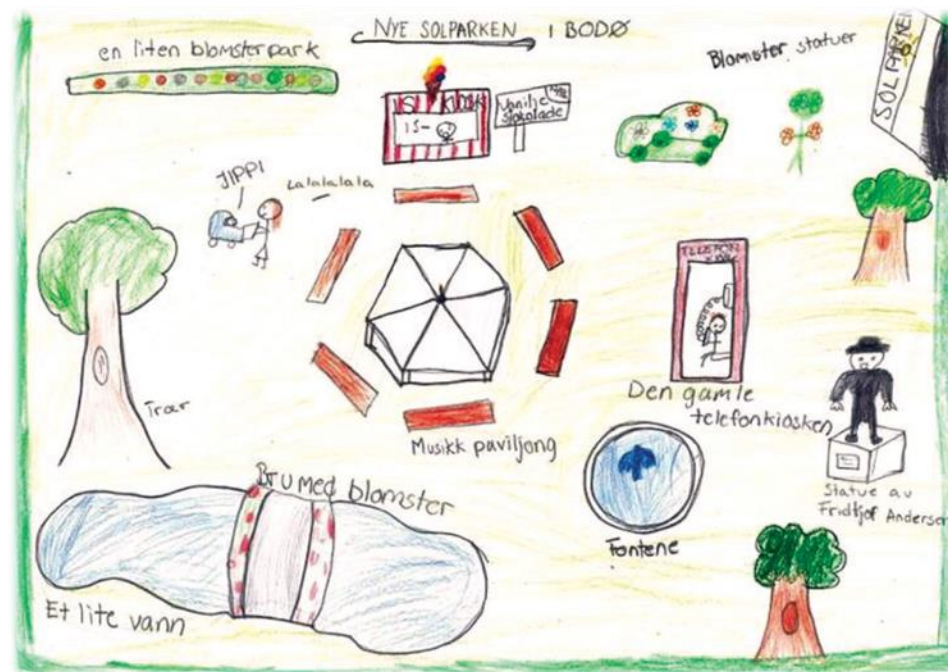 NYE SOLPARKEN I BODØ
en liten blomsterpark
Blomster statuer
SOLPARKEN
IS KIOSK
IS-
Vanilje
sjokolade
JIPPI
Lalalalala
TELEFON
Den gamle
telefonkiosken
Trær
Musikk paviljong
Statue av
Fridtjof Andersen
Bru med blomster
Fontene
Et lite vann